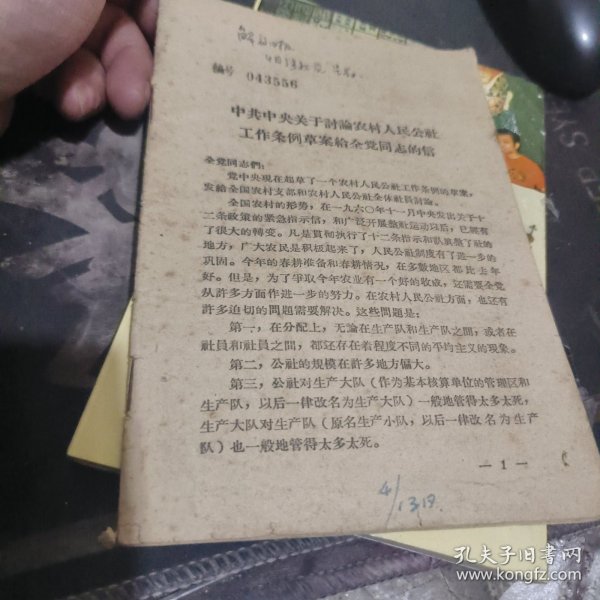 编号 043556
中共中央关于討論农村人民公社
工作条例草案給全党同志的信
全党同志們：
党中央現在起草了一个农村人民公社工作条例的草案，
发給全国农村支部和农村人民公社全体社員討論。
全国农村的形势，在一九六〇年十一月中央发出关于十
二条政策的紧急指示信，和广泛开展整社运动以后，已經有
了很大的轉变。凡是貫彻执行了十二条指示和认真整了社的
地方，广大农民是积极起来了，人民公社制度有了进一步的
巩固。今年的春耕准备和春耕情况，在多数地区都比去年
好。但是，为了爭取今年农业有一个好的收成，还需要全党
从許多方面作进一步的努力。在农村人民公社方面，也还有
許多迫切的問題需要解决。这些問題是：
第一，在分配上，无論在生产队和生产队之間，或者在
社員和社員之間，都还存在着程度不同的平均主义的現象。
第二，公社的規模在許多地方偏大。
第三，公社对生产大队（作为基本核算单位的管理区和
生产队，以后一律改名为生产大队）一般地管得太多太死，
生产大队对生产队（原名生产小队，以后一律改名为生产
队）也一般地管得太多太死。
— 1 —
4/13日
孔夫子旧书网
www.kongfz.com